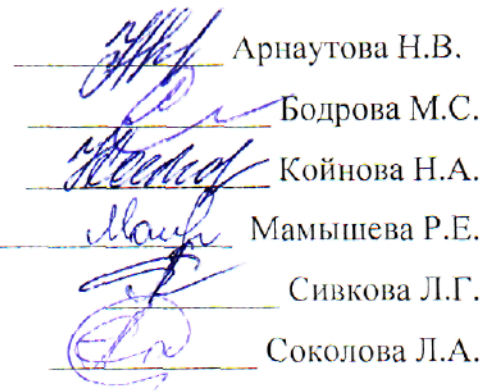 Арнаутова Н.В.
Бодрова М.С.
Койнова Н.А.
Мамышева Р.Е.
Сивкова Л.Г.
Соколова Л.А.